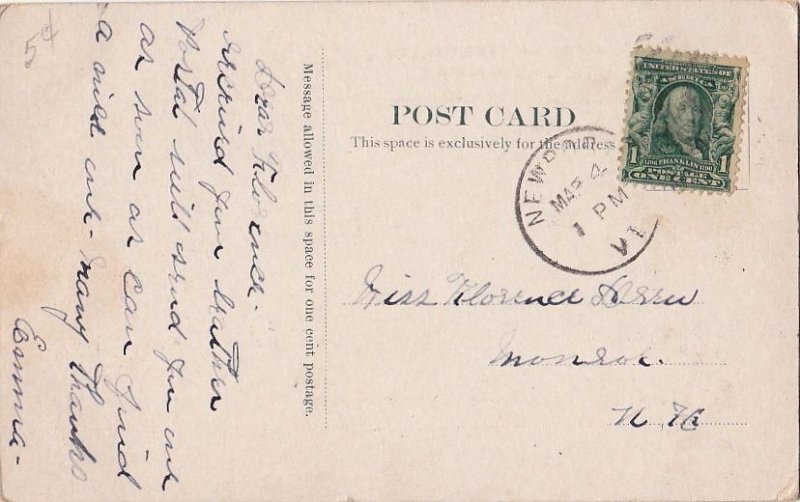 5¢
Dear Florence-
received your leather
Postal will send you one
as soon as can find
a nice one- many thanks
Emma-
Message allowed in this space for one cent postage.
POST CARD
This space is exclusively for the address
UNITED STATES OF
AMERICA
1 1706 FRANKLIN 1790 1
POSTAGE
ONE CENT
NEWPORT
MAR 4
1 PM
VT
Miss Florence
Monroe.
N H